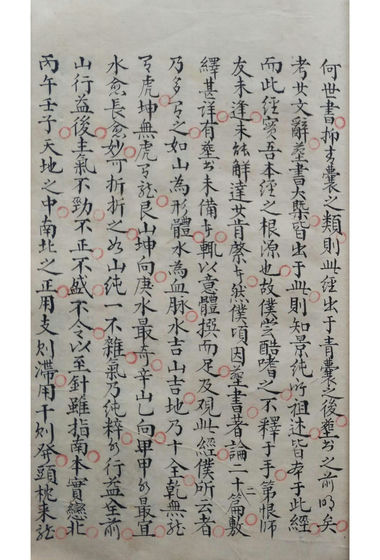 何世書抑青囊之類則此經出于青囊之後葬書之前明矣
考其文辭葬書大槩皆出于此則知景純所祖述皆本于此經
而此經實吾本經之根源也故僕尝酷嗜之不釋于手第恨師
友未逢未能解達其肯綮于然僕頃因葬書著論二十篇敷
繹甚詳有葬書未備者輒以意體撰而足及观此經僕所云者
乃多有之如山為形體水為血脉水吉山吉地乃十全乾無龍
有虎坤無虎有龍艮山坤向庚水最奇辛山乙向甲甲水最宜
水愈長愈妙可折折之如山純一不雜氣乃純粹水行益全前
山行益後主氣不勁不正不盛不令以至針雖指南本實戀北
丙午壬子天地之中南北之正用支則滯用干則發頭枕来龍